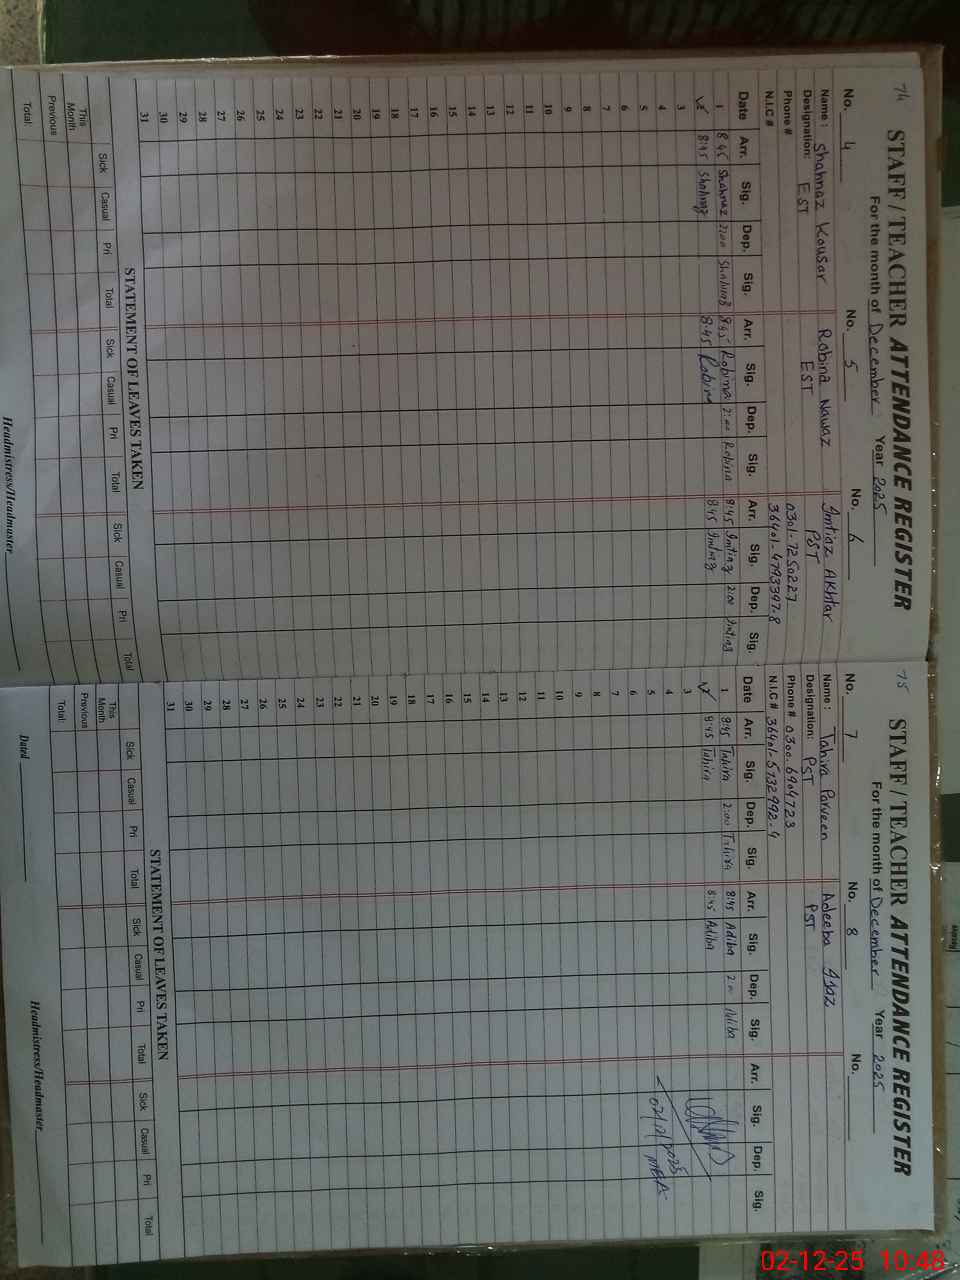 74
STAFF / TEACHER ATTENDANCE REGISTER
For the month of December Year 2025
No. 4 No. 5 No. 6
Name : Shahnaz Kousar Robina Nawaz Imtiaz Akhtar
Designation: EST EST PST
Phone # 0301-7250227
N.I.C # 36401-4793397-8
Date Arr. Sig. Dep. Sig. Arr. Sig. Dep. Sig. Arr. Sig. Dep. Sig.
1 8:45 Shahnaz 2:00 Shahnaz 8:45 Robina 2:00 Robina 8:45 Imtiaz 2:00 Imtiaz
8:45 Shahnaz 8:45 Robina 8:45 Imtiaz
3
4
5
6
7
8
9
10
11
12
13
14
15
16
17
18
19
20
21
22
23
24
25
26
27
28
29
30
31
STATEMENT OF LEAVES TAKEN
Sick Casual Pri Total Sick Casual Pri Total Sick Casual Pri Total
This Month
Previous
Total:
Headmistress/Headmaster
75
STAFF / TEACHER ATTENDANCE REGISTER
For the month of December Year 2025
No. 7 No. 8 No.
Name : Tahira Parveen Adeeba Ijaz
Designation: PST PST
Phone # 0300-6904723
N.I.C # 36401-5732992-4
Date Arr. Sig. Dep. Sig. Arr. Sig. Dep. Sig. Arr. Sig. Dep. Sig.
1 8:45 Tahira 2:00 Tahira 8:45 Adiba 2:00 Adiba
8:45 Tahira 8:45 Adiba
3
4
5
6
7
8
9
10
11
12
13
14
15
16
17
18
19
20
21
22
23
24
25
26
27
28
29
30
31
02/12/2025
MEA
STATEMENT OF LEAVES TAKEN
Sick Casual Pri Total Sick Casual Pri Total Sick Casual Pri Total
This Month
Previous
Total:
Dated Headmistress/Headmaster
02-12-25 10:48